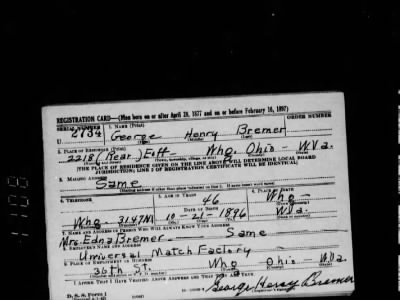 REGISTRATION CARD—(Men born on or after April 28, 1877 and on or before February 16, 1897)
SERIAL NUMBER 1. NAME (Print) ORDER NUMBER
U 2734 George Henry Bremer
2. PLACE OF RESIDENCE (Print)
2218 (Rear) Eoff - Whg. Ohio - W.Va.
[THE PLACE OF RESIDENCE GIVEN ON THE LINE ABOVE WILL DETERMINE LOCAL BOARD
JURISDICTION; LINE 2 OF REGISTRATION CERTIFICATE WILL BE IDENTICAL]
3. MAILING ADDRESS
Same
4. TELEPHONE 5. AGE IN YEARS 6. PLACE OF BIRTH
46 Whg -
DATE OF BIRTH
Whg. 3147M 10-21-1896 W.Va.
7. NAME AND ADDRESS OF PERSON WHO WILL ALWAYS KNOW YOUR ADDRESS
Mrs. Edna Bremer - Same
8. EMPLOYER'S NAME AND ADDRESS
Universal Match Factory -
9. PLACE OF EMPLOYMENT OR BUSINESS
36th St. Whg Ohio W.Va.
I AFFIRM THAT I HAVE VERIFIED ABOVE ANSWERS AND THAT THEY ARE TRUE.
George Henry Bremer
D.S.S. Form 1